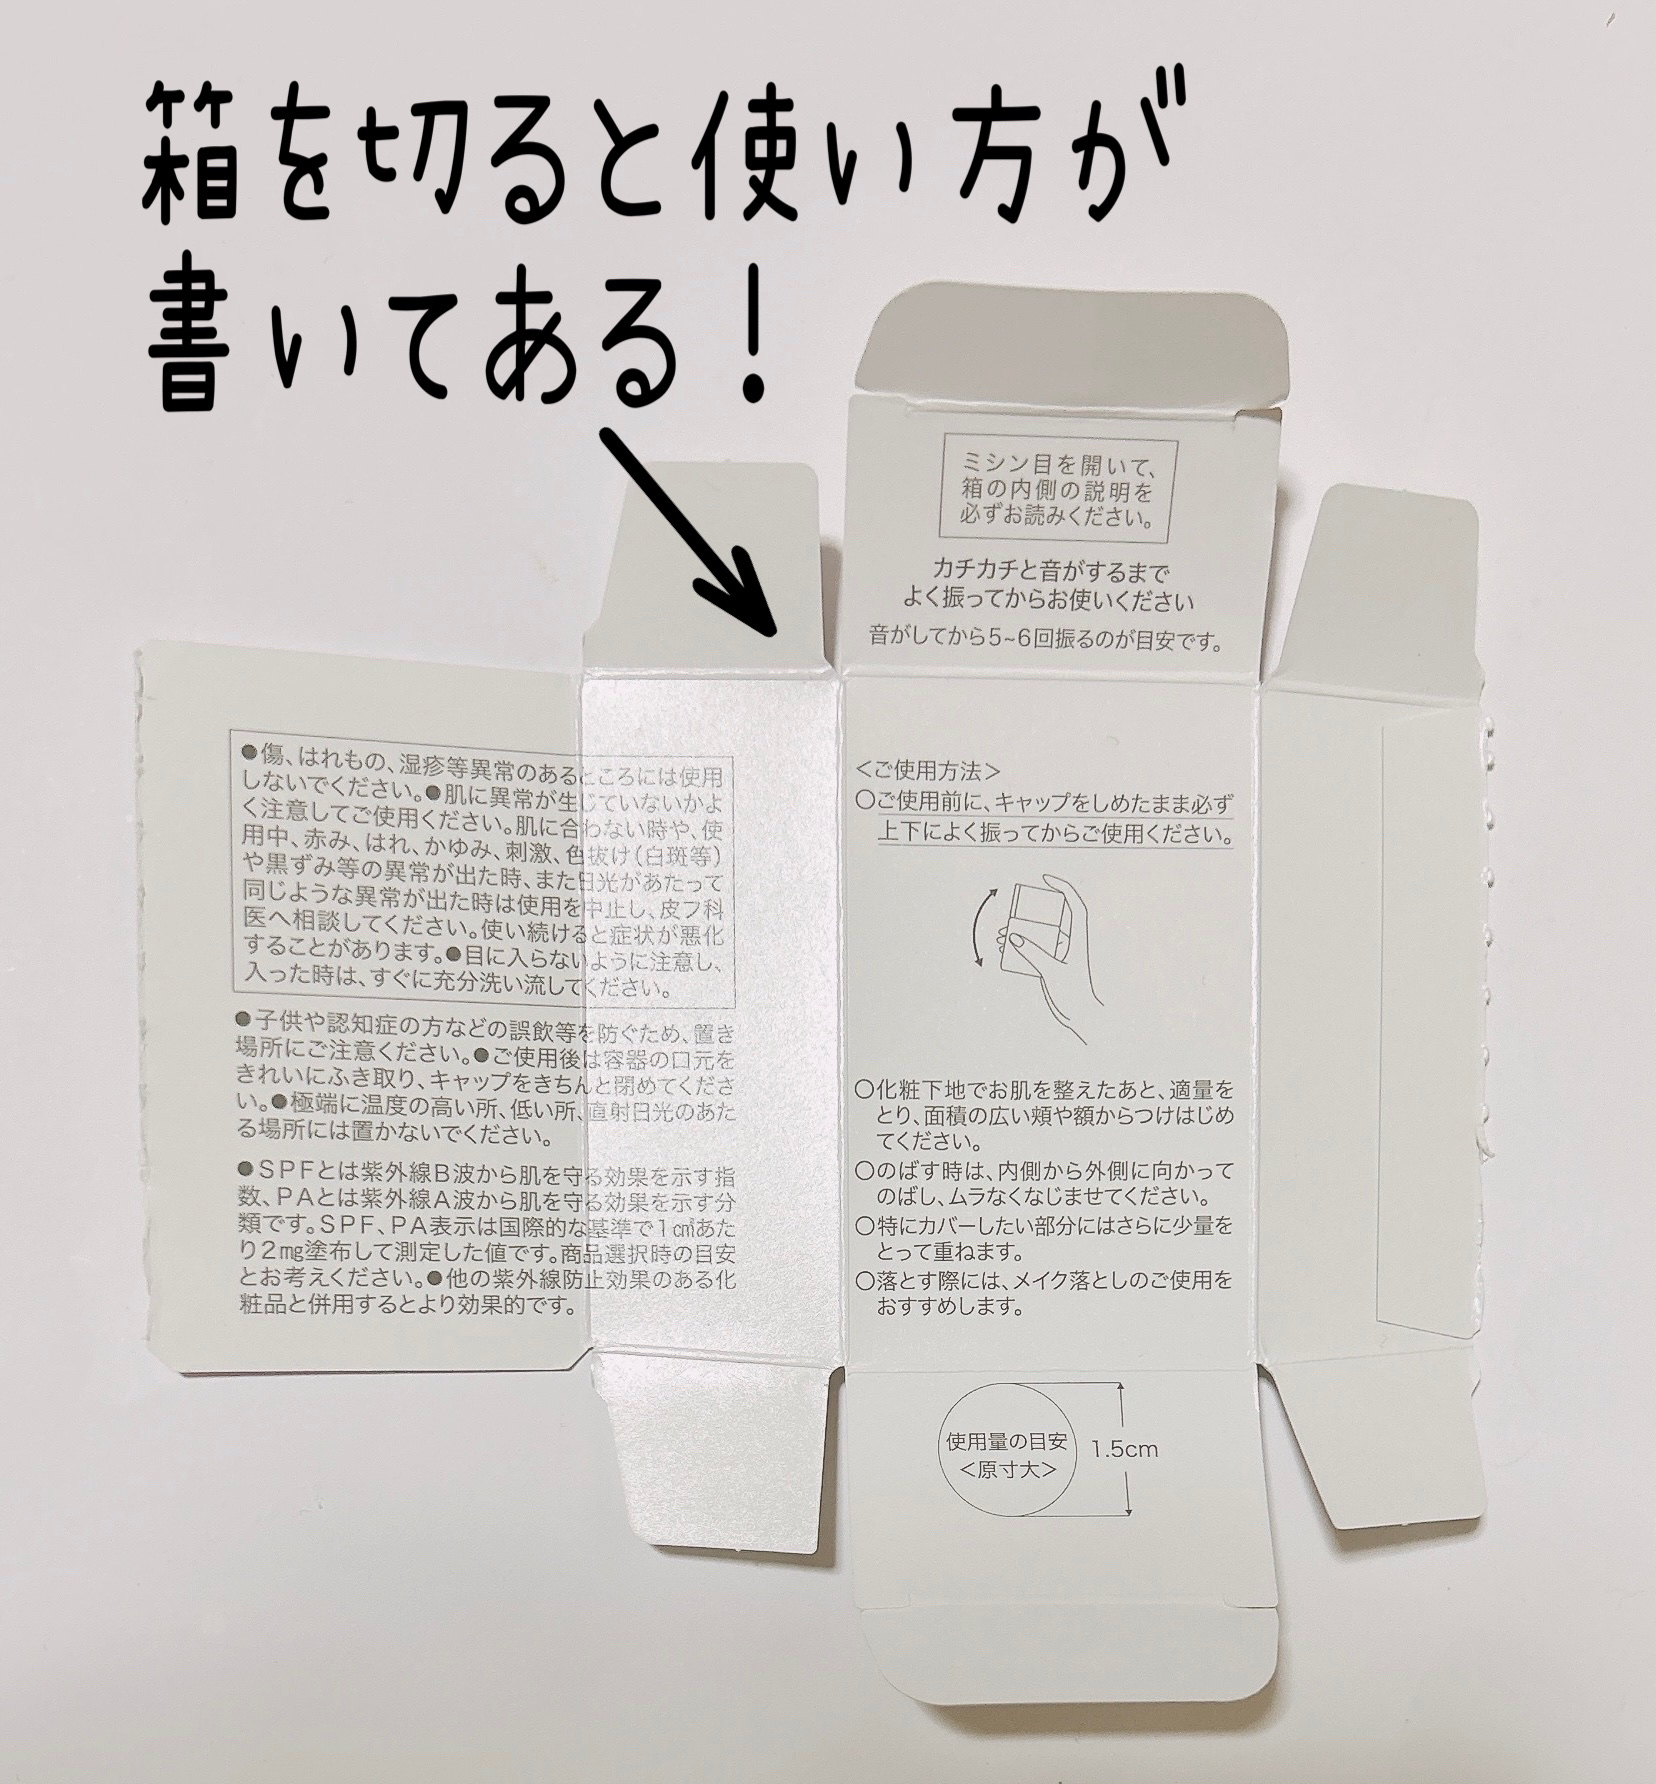 箱を切ると使い方が
書いてある！
ミシン目を開いて、
箱の内側の説明を
必ずお読みください。
カチカチと音がするまで
よく振ってからお使いください
音がしてから5~6回振るのが目安です。
●傷、はれもの、湿疹等異常のあるところには使用
しないでください。●肌に異常が生じていないかよ
く注意してご使用ください。肌に合わない時や、使
用中、赤み、はれ、かゆみ、刺激、色抜け（白斑等）
や黒ずみ等の異常が出た時、また日光があたって
同じような異常が出た時は使用を中止し、皮フ科
医へ相談してください。使い続けると症状が悪化
することがあります。●目に入らないように注意し、
入った時は、すぐに充分洗い流してください。
●子供や認知症の方などの誤飲等を防ぐため、置き
場所にご注意ください。●ご使用後は容器の口元を
きれいにふき取り、キャップをきちんと閉めてくださ
い。●極端に温度の高い所、低い所、直射日光のあた
る場所には置かないでください。
●SPFとは紫外線B波から肌を守る効果を示す指
数、PAとは紫外線A波から肌を守る効果を示す分
類です。SPF、PA表示は国際的な基準で1㎠あた
り2㎎塗布して測定した値です。商品選択時の目安
とお考えください。●他の紫外線防止効果のある化
粧品と併用するとより効果的です。
＜ご使用方法＞
○ご使用前に、キャップをしめたまま必ず
上下によく振ってからご使用ください。
○化粧下地でお肌を整えたあと、適量を
とり、面積の広い頬や額からつけはじめ
てください。
○のばす時は、内側から外側に向かって
のばし、ムラなくなじませてください。
○特にカバーしたい部分にはさらに少量を
とって重ねます。
○落とす際には、メイク落としのご使用を
おすすめします。
使用量の目安
＜原寸大＞
1.5cm